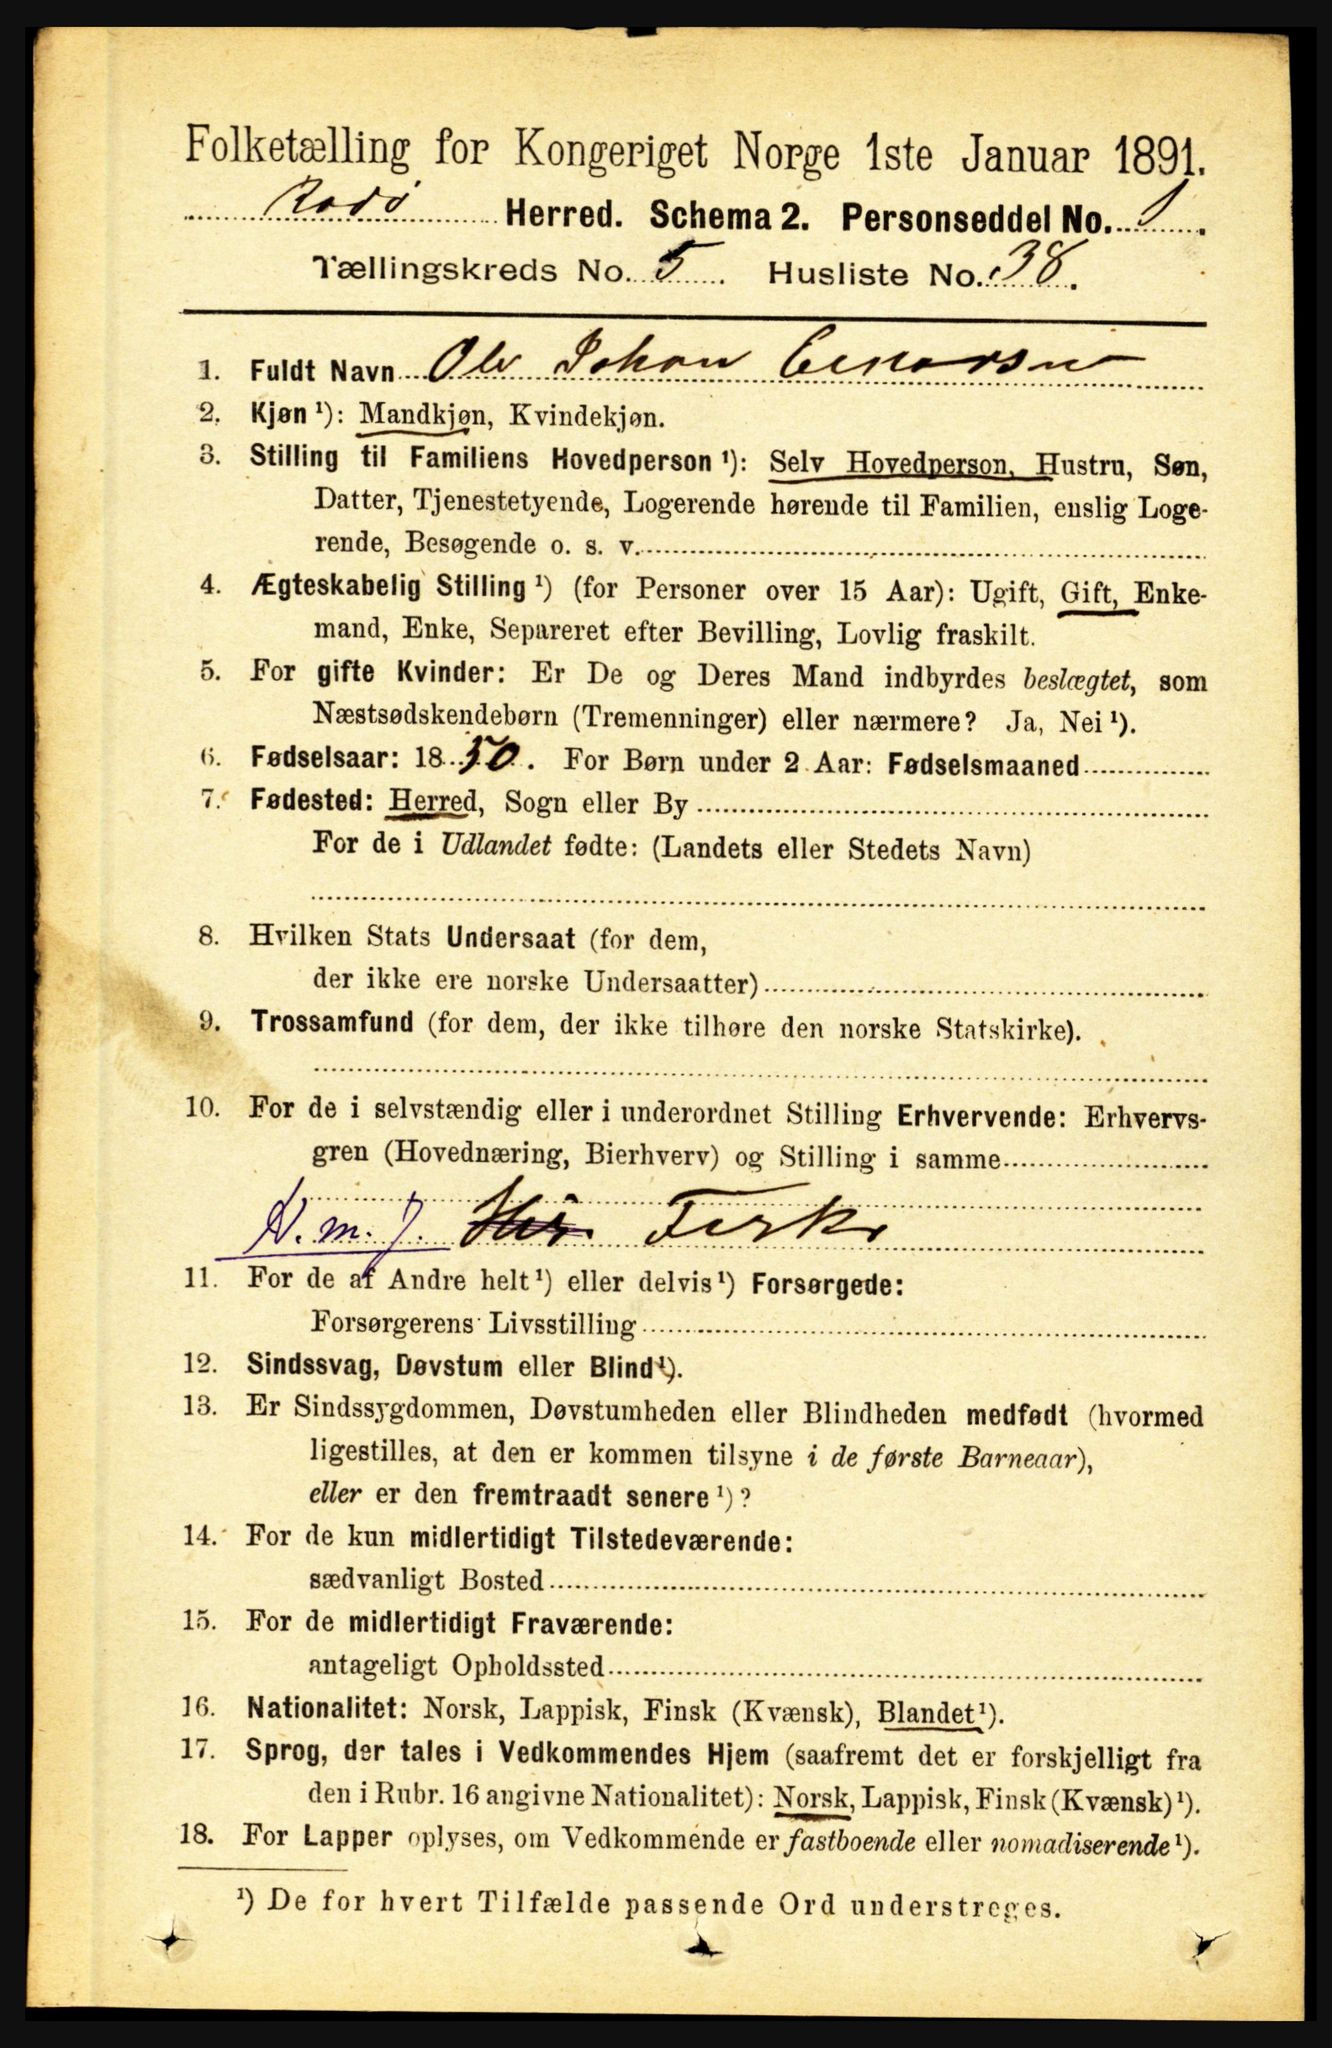 Folketælling for Kongeriget Norge 1ste Januar 1891.
Rødø Herred. Schema 2. Personseddel No. 1.
Tællingskreds No. 5. Husliste No. 38.
1. Fuldt Navn Ole Johan
2. Kjøn ¹): Mandkjøn, Kvindekjøn.
3. Stilling til Familiens Hovedperson ¹): Selv Hovedperson, Hustru, Søn,
Datter, Tjenestetyende, Logerende hørende til Familien, enslig Loge-
rende, Besøgende o. s. v.
4. Ægteskabelig Stilling ¹) (for Personer over 15 Aar): Ugift, Gift, Enke-
mand, Enke, Separeret efter Bevilling, Lovlig fraskilt.
5. For gifte Kvinder: Er De og Deres Mand indbyrdes beslægtet, som
Næstsødskendebørn (Tremenninger) eller nærmere? Ja, Nei ¹).
6. Fødselsaar: 1850. For Børn under 2 Aar: Fødselsmaaned
7. Fødested: Herred, Sogn eller By
For de i Udlandet fødte: (Landets eller Stedets Navn)
8. Hvilken Stats Undersaat (for dem,
der ikke ere norske Undersaatter)
9. Trossamfund (for dem, der ikke tilhøre den norske Statskirke).
10. For de i selvstændig eller i underordnet Stilling Erhvervende: Erhvervs-
gren (Hovednæring, Bierhverv) og Stilling i samme
N. m. J. Fisker
11. For de af Andre helt ¹) eller delvis ¹) Forsørgede:
Forsørgerens Livsstilling
12. Sindssvag, Døvstum eller Blind ¹).
13. Er Sindssygdommen, Døvstumheden eller Blindheden medfødt (hvormed
ligestilles, at den er kommen tilsyne i de første Barneaar),
eller er den fremtraadt senere ¹)?
14. For de kun midlertidigt Tilstedeværende:
sædvanligt Bosted
15. For de midlertidigt Fraværende:
antageligt Opholdssted
16. Nationalitet: Norsk, Lappisk, Finsk (Kvænsk), Blandet ¹).
17. Sprog, der tales i Vedkommendes Hjem (saafremt det er forskjelligt fra
den i Rubr. 16 angivne Nationalitet): Norsk, Lappisk, Finsk (Kvænsk) ¹).
18. For Lapper oplyses, om Vedkommende er fastboende eller nomadiserende ¹).
¹) De for hvert Tilfælde passende Ord understreges.